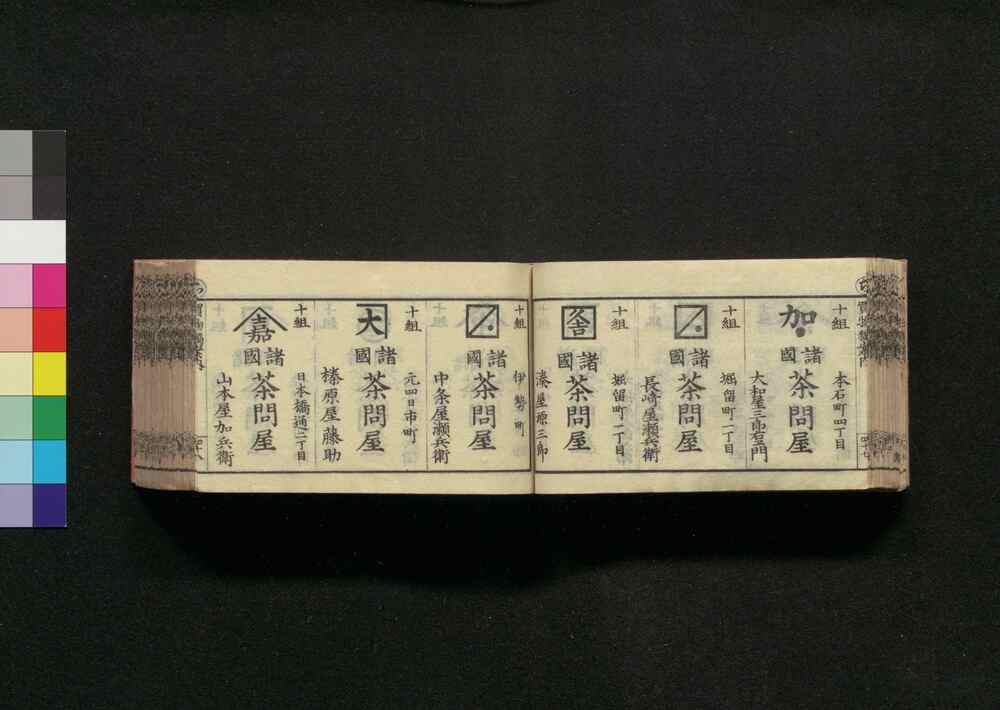 十組
本石町四丁目
加
諸國
茶問屋
大和屋三郎右衛門
十組
堀留町二丁目
諸國
茶問屋
長崎屋瀬兵衛
十組
堀留町一丁目
諸國
茶問屋
湊屋源三郎
十組
伊勢町
諸國
茶問屋
中条屋瀬兵衛
十組
元四日市町
大
諸國
茶問屋
榛原屋藤助
十組
日本橋通二丁目
嘉
諸國
茶問屋
山本屋加兵衛